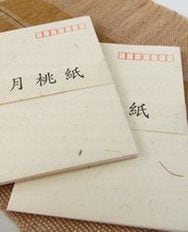 月桃紙
紙